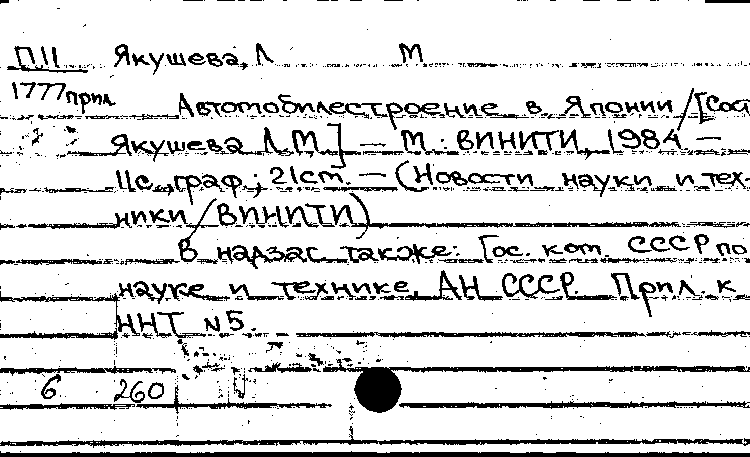 П11 Якушева, Л М
1777прил
Автомобилестроение в Японии / [Сост
Якушева Л.М.] — М.: ВИНИТИ, 1984 —
11с., граф.; 21ст. — (Новости науки и тех-
ники / ВИНИТИ)
В надзаг также: Гос. ком. СССР по
науке и технике, АН СССР. Прил. к
ННТ N5.
6 260